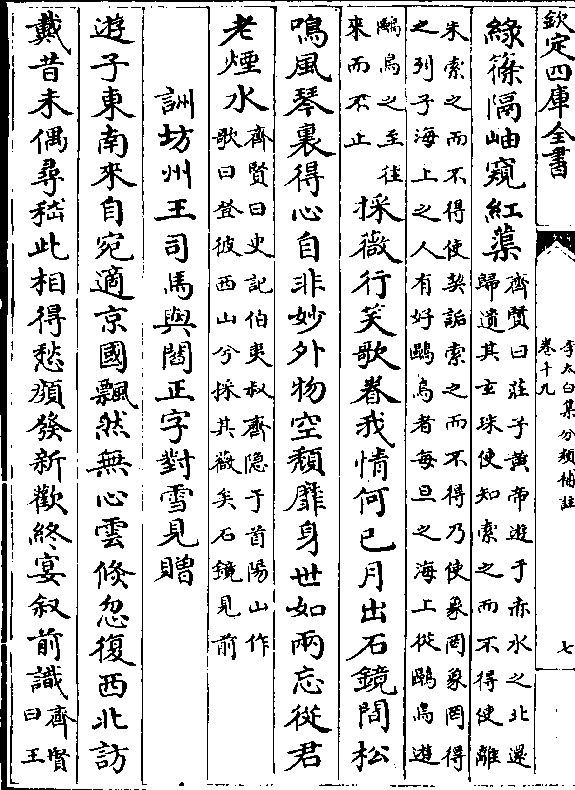 欽定四庫全書
李太白集分類補註
卷十九
七
綠篠隔岫窺紅蕖
齊賢曰莊子黃帝遊于赤水之北還
歸遺其玄珠使知索之而不得使離
朱索之而不得使契詬索之而不得乃使象罔象罔得
之列子海上之人有好鷗鳥者每旦之海上從鷗鳥遊
鷗鳥之至往
來而不止
採薇行笑歌眷我情何已月出石鏡間松
鳴風琴裏得心自非妙外物空頹靡身世如兩忘從君
老煙水
齊賢曰史記伯夷叔齊隐于首陽山作
歌曰登彼西山兮採其薇矣石鏡見前
詶坊州王司馬與閻正字對雪見贈
遊子東南來自宛適京國飄然無心雲倏忽復西北訪
戴昔未偶尋嵇此相得愁顔發新歡終宴叙前識
齊賢
曰王